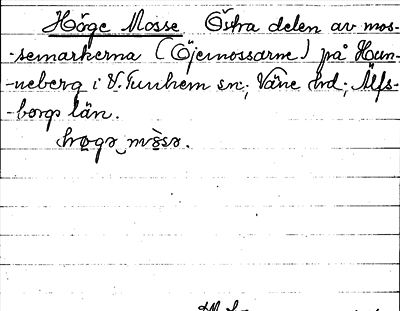 Höge Mosse Östra delen av mos-
-semarkerna (Öjemossarne) på Hun-
-neberg i V. Tunhem sn; Väne hd; Älfs-
-borgs län.
høgə mòsə.